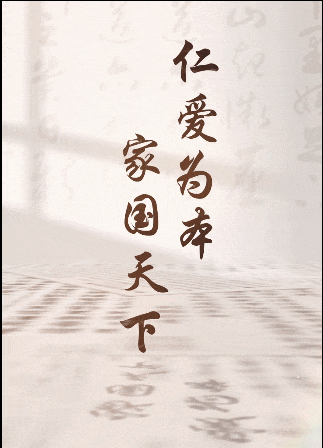 仁爱为本
家国天下